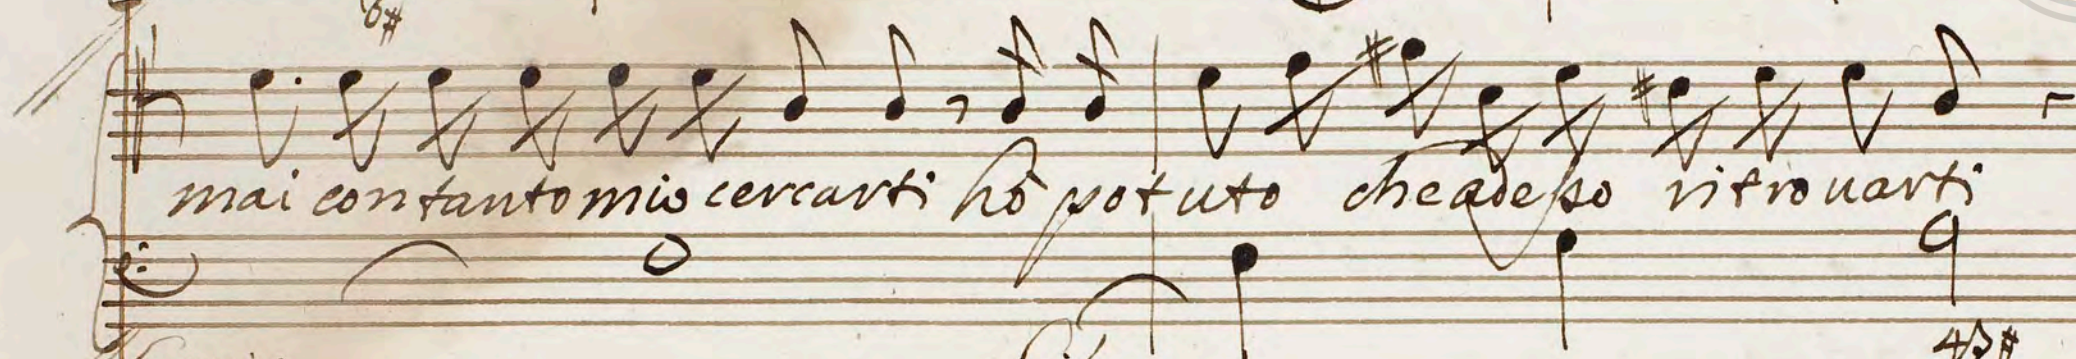 6#
mai con tanto mio cercarti hò potuto che adesso ritrovarti
43#